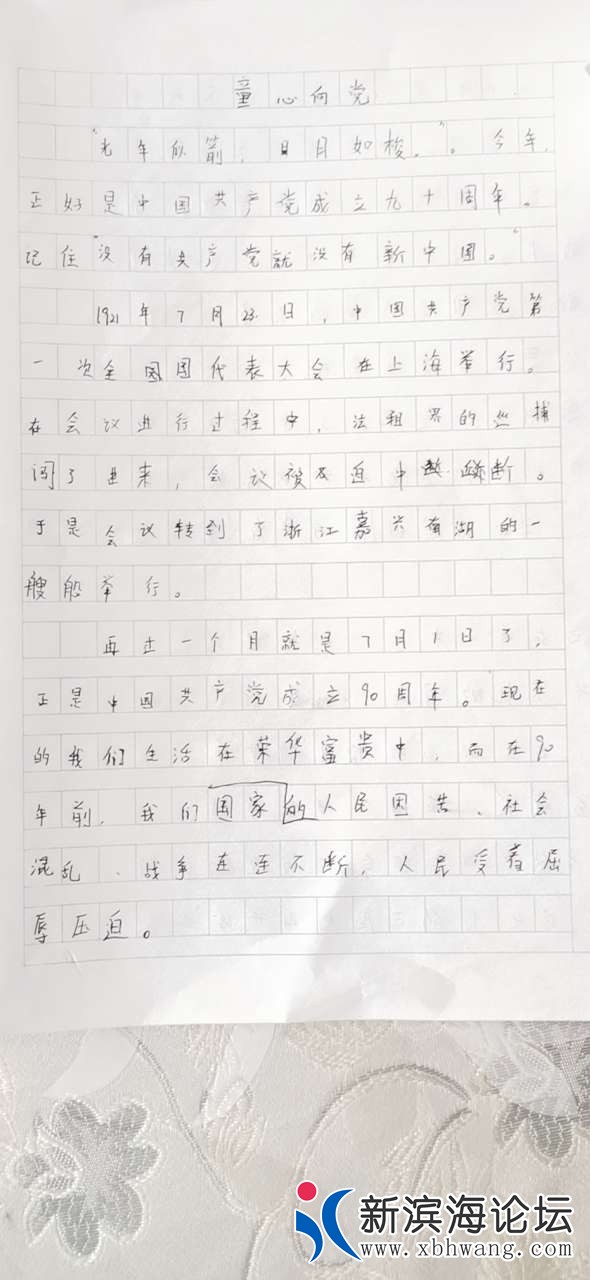 童心向党
“光年似箭，日月如梭。”。今年，
正好是中国共产党成立九十周年。
记住“没有共产党就没有新中国。”
1921年7月23日，中国共产党第
一次全国国代表大会在上海举行。
在会议进行过程中，法租界的巡捕
闯了进来，会议被迫中断。
于是会议转到了浙江嘉兴南湖的一
艘船举行。
再过一个月就是7月1日了，
正是中国共产党成立90周年。现在
的我们生活在荣华富贵中，而在90
年前，我们国家的人民困苦、社会
混乱、战争连连不断，人民受着屈
辱压迫。
新滨海论坛
www.xbhwang.com